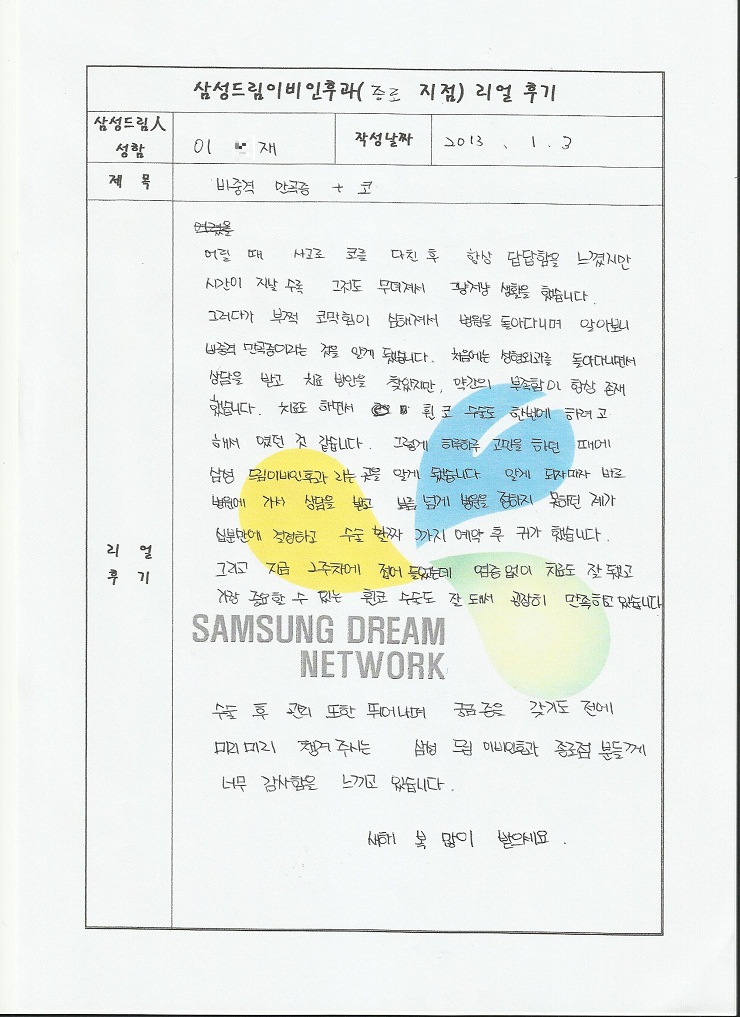 삼성드림이비인후과( 종로 지점) 리얼 후기
삼성드림人 성함
이 재
작성날짜
2013 . 1 . 3
제 목
비중격 만곡증 + 코
리 얼 후 기
어릴 때 사고로 코를 다친 후 항상 답답함을 느꼈지만
시간이 지날 수록 그것도 무뎌져서 그냥저냥 생활을 했습니다.
그러다가 부쩍 코막힘이 심해져서 병원을 돌아다니며 알아보니
비중격 만곡증이라는 것을 알게 됐습니다. 처음에는 성형외과를 돌아다니면서
상담을 받고 치료 방안을 찾았지만, 약간의 부족함이 항상 존재
했습니다. 치료도 하면서 휜 코 수술도 한번에 하려고
해서 였던 것 같습니다. 그렇게 하루하루 고민을 하던 때에
삼성 드림이비인후과 라는 곳을 알게 됐습니다 알게 되자마자 바로
병원에 가서 상담을 받고 보름 넘게 병원을 정하지 못하던 제가
십분만에 결정하고 수술 날짜 까지 예약 후 귀가 했습니다.
그리고 지금 2주차에 접어 들었는데 염증 없이 치료도 잘 됐고
가장 중요할 수 있는 휜코 수술도 잘 돼서 굉장히 만족하고 있습니다
SAMSUNG DREAM
NETWORK
수술 후 관리 또한 뛰어나며 궁금증을 갖기도 전에
미리미리 챙겨 주시는 삼성 드림 이비인후과 종로점 분들께
너무 감사함을 느끼고 있습니다.
새해 복 많이 받으세요.